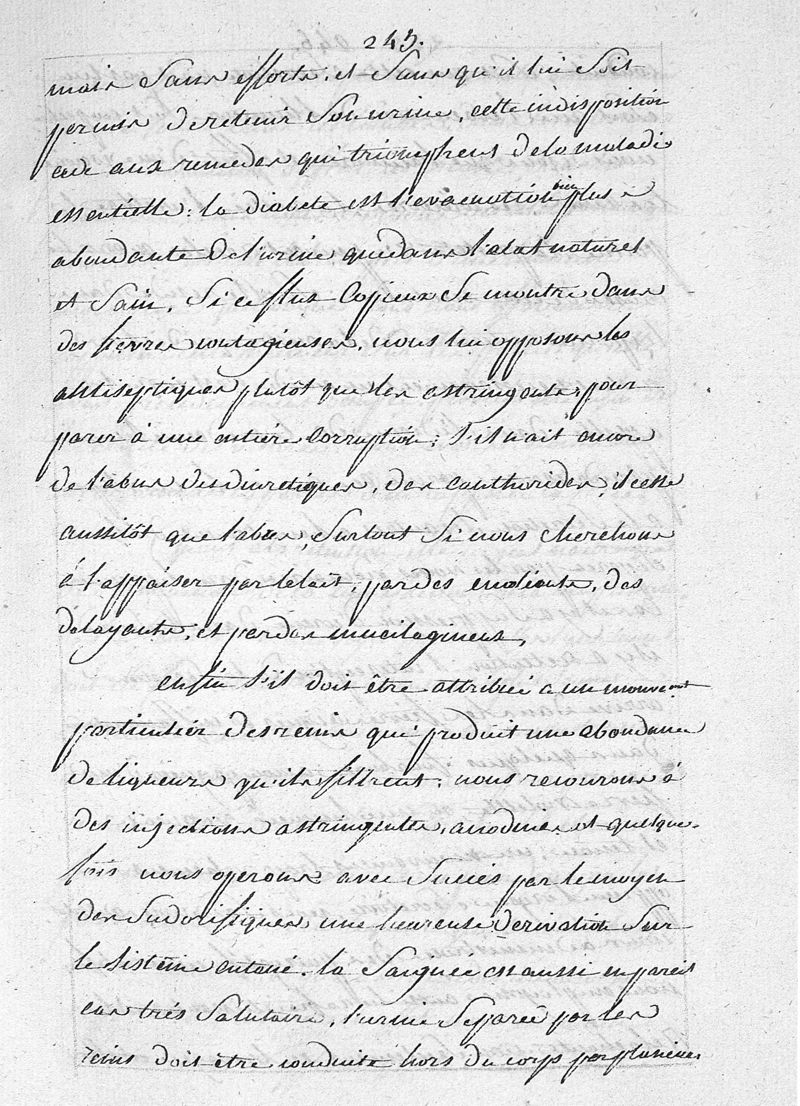 245.
mais Sans efforts, et Sans qu'il lui Soit
permis de retenir Son urine, cette indisposition
cede aux remedes qui triomphent de la maladie
essentielle: la diabete est l'evacuation bien plus
abondante de l'urine que dans l'etat naturel
et Sain, Si ce flux Copieux Se montre dans
des fievres contagieuses, nous lui opposons les
antiseptiques plutôt que les astringents, pour
parer à une entiére Corruption; S'il nait encore
de l'abus des diuretiques, des canthorides, il cesse
aussitôt que l'abus, Surtout Si nous cherchons
à l'appaiser par le lait, par des emolients, des
delayants, et par des mucilagineux,
enfin S'il doit être attribué a un mouvement
particulier des reins qui produit une abondance
de liqueurs qu'ils filtrent, nous recourons à
des injections astringentes, anodines et quelque-
fois nous operons avec Succés par le moyen
des Sudorifiques une heureuse derivation Sur
le Sistême cutané. la Saignée est aussi en pareil
cas trés Salutaire, l'urine Separeé par les
reins doit être conduite hors du corps par plusieurs